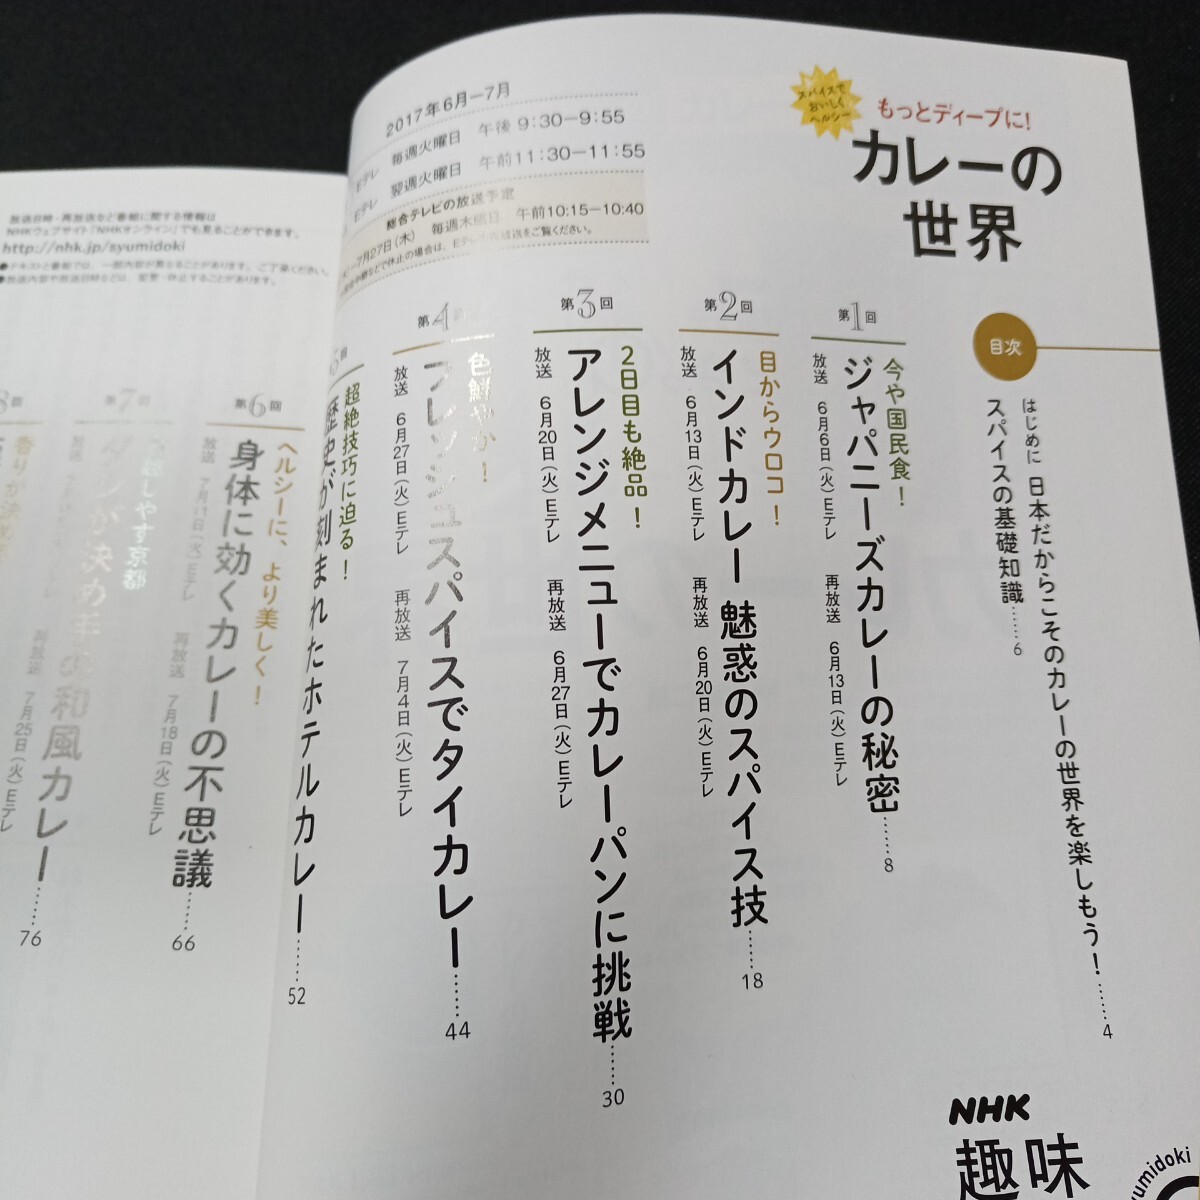 スパイスで
おいしく
ヘルシー
もっとディープに!
カレーの
世界
2017年6月—7月
Eテレ 毎週火曜日 午後9:30—9:55
Eテレ 翌週火曜日 午前11:30—11:55
総合テレビの放送予定
—7月27日(木) 毎週木曜日 午前10:15—10:40
目次
はじめに 日本だからこそのカレーの世界を楽しもう!……4
スパイスの基礎知識……6
第1回
今や国民食!
ジャパニーズカレーの秘密……8
放送 6月6日(火)Eテレ 再放送 6月13日(火)Eテレ
第2回
目からウロコ!
インドカレー 魅惑のスパイス技……18
放送 6月13日(火)Eテレ 再放送 6月20日(火)Eテレ
第3回
2日目も絶品!
アレンジメニューでカレーパンに挑戦……30
放送 6月20日(火)Eテレ 再放送 6月27日(火)Eテレ
第4回
色鮮やか!
フレッシュスパイスでタイカレー……44
放送 6月27日(火)Eテレ 再放送 7月4日(火)Eテレ
5回
超絶技巧に迫る!
歴史が刻まれたホテルカレー……52
第6回
ヘルシーに、より美しく!
身体に効くカレーの不思議……66
放送 7月11日(火)Eテレ 再放送 7月18日(火)Eテレ
第7回
京都
が決め手の和風カレー……76
再放送 7月25日(火)Eテレ
8回
放送日時・再放送など番組に関する情報は
NHKウェブサイト「NHKオンライン」でも見ることができます。
http://nhk.jp/syumidoki
●テキストと番組では、一部内容が異なることがあります。ご了承ください。
●放送内容や放送日時などは、変更・休止することがあります。
NHK
趣味
umidoki